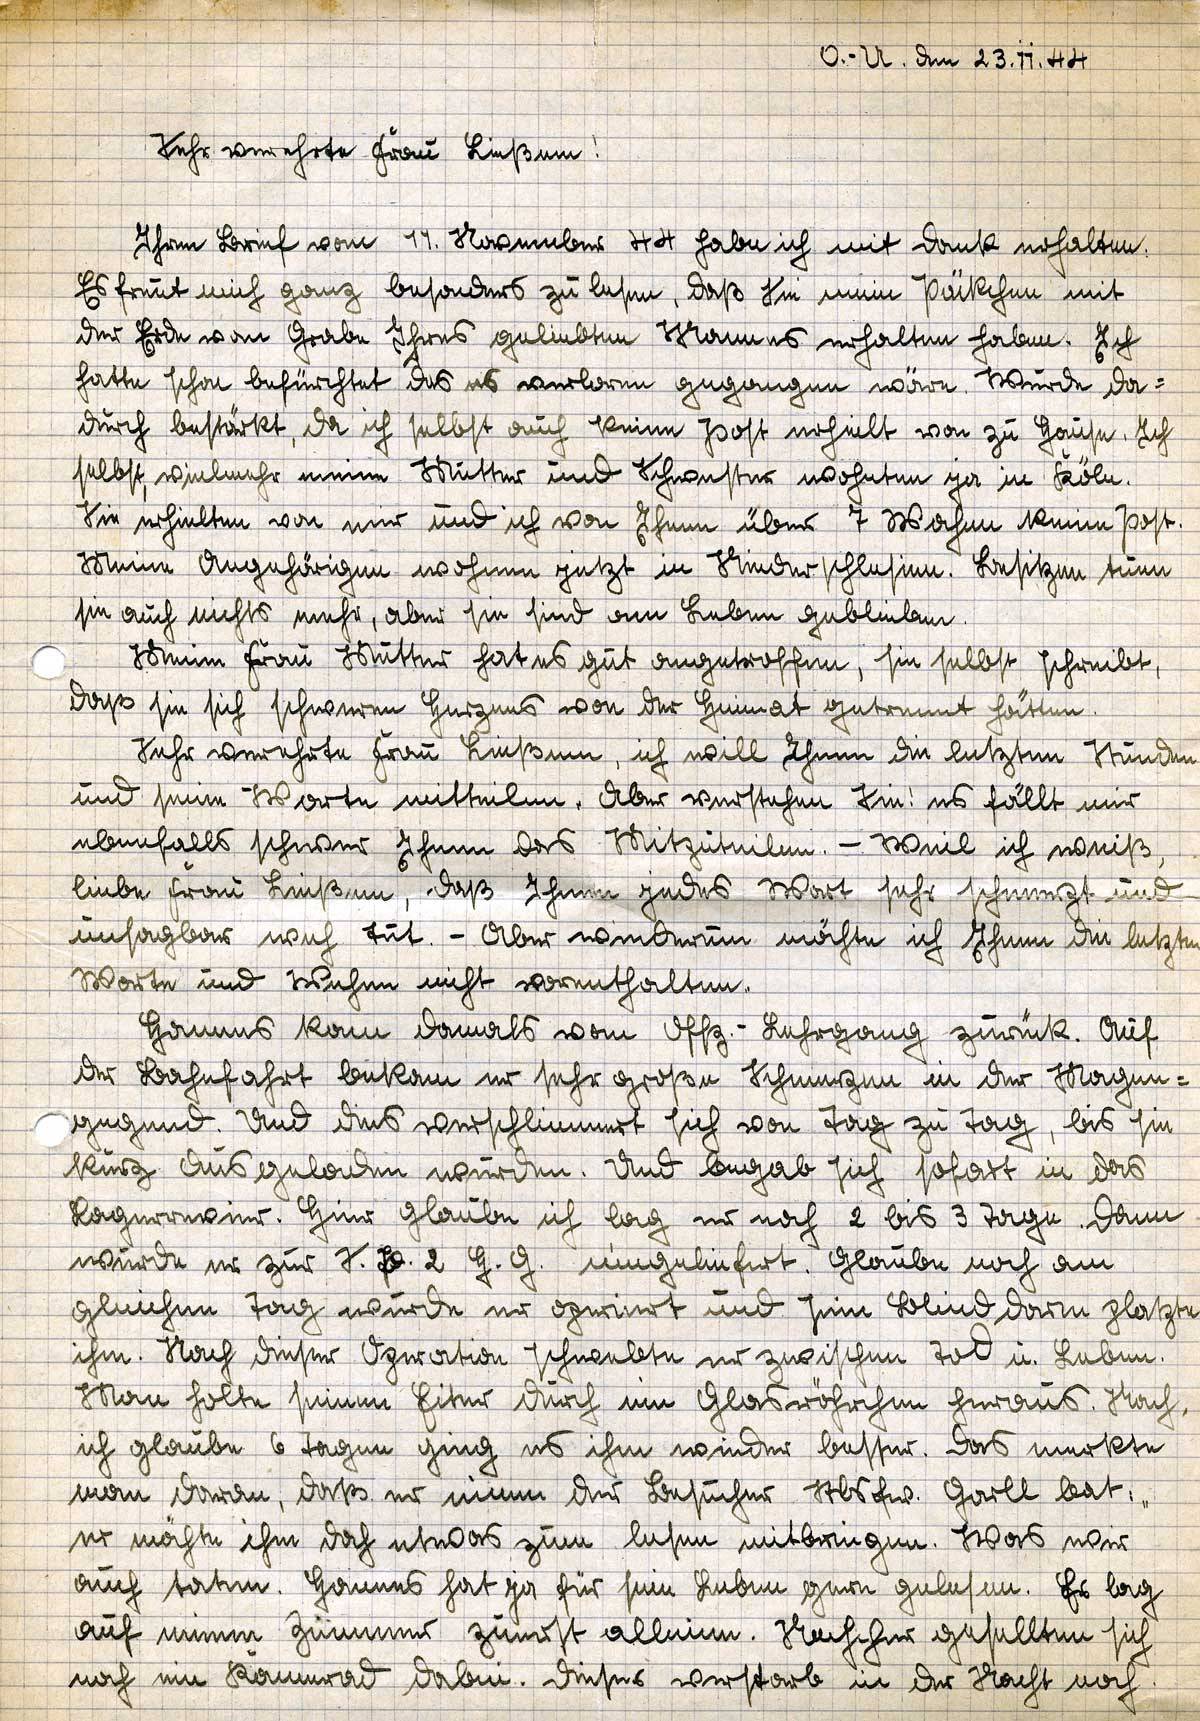 O.-U. den 23.11.44
Sehr verehrte Frau Ließem!
Ihren Brief vom 11. November 44 habe ich mit Dank erhalten.
Es freut mich ganz besonders zu lesen, daß Sie mein Päckchen mit
der Erde vom Grabe Ihres geliebten Mannes erhalten haben. Ich
hatte schon befürchtet das es verloren gegangen wäre. Wurde da=
durch bestärkt, da ich selbst auch keine Post erhielt von zu Hause. Ich
selbst, vielmehr meine Mutter und Schwester wohnten ja in Köln.
Sie erhielten von mir und ich von Ihnen über 7 Wochen keine Post.
Meine Angehörigen wohnen jetzt in Niederschlesien. Besitzen tuen
sie auch nichts mehr, aber sie sind am Leben geblieben.
Meine Frau Mutter hat es gut angetroffen, sie selbst schreibt,
daß sie sich schweren Herzens von der Heimat getrennt hätten.
Sehr verehrte Frau Ließem, ich will Ihnen die letzten Stunden
und seine Worte mitteilen. Aber verstehen Sie! es fällt mir
ebenfalls schwer Ihnen das Mitzuteilen. – Weil ich weiß,
liebe Frau Ließem, daß Ihnen jedes Wort sehr schmerzt und
unsagbar weh tut. – Aber wiederum möchte ich Ihnen die letzten
Worte und Wochen nicht vorenthalten.
Hannes kam damals vom Offz.- Lehrgang zurück. Auf
der Bahnfahrt bekam er sehr große Schmerzen in der Magen=
gegend. Und dies verschlimmert sich von Tag zu Tag, bis sie
kurz ausgeladen wurden. Und begab sich sofort in das
Lagerrevier. Hier glaube ich lag er noch 2 bis 3 Tage. Dann
wurde er zur S. 2 H. G. eingeliefert. Glaube noch am
gleichen Tag wurde er operiert und sein Blinddarm platzte
ihm. Nach dieser Operation schwebte er zwischen Tod u. Leben.
Man holte seinen Eiter durch ein Glasröhrchen heraus. Nach,
ich glaube 6 Tagen ging es ihm wieder besser. Das merkte
man daran, daß er einen der Besucher Stbsfw. Goell bat: „
er möchte ihm doch etwas zum lesen mitbringen. Was wir
auch taten. Hannes hat ja für sein Leben gern gelesen. Er lag
auf einem Zimmer zuerst alleine. Nachher gesellten sich
noch ein Kamerad dabei. Dieser verstarb in der Nacht noch.